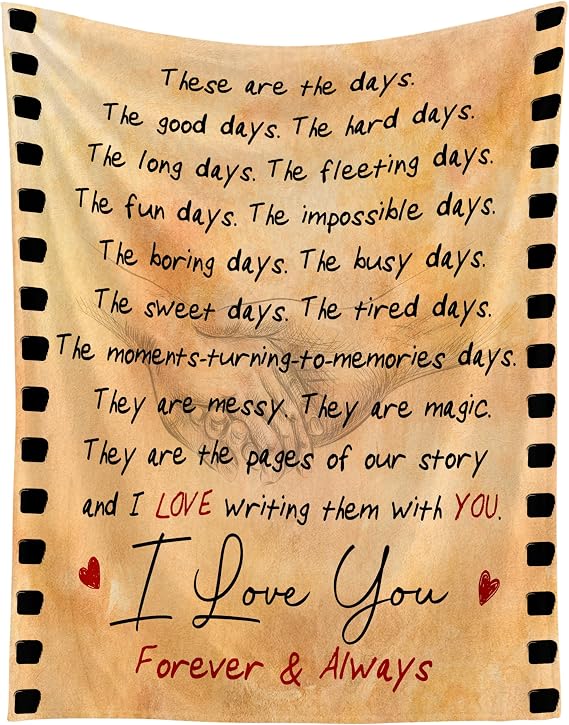 These are the days.
The good days. The hard days.
The long days. The fleeting days.
The fun days. The impossible days.
The boring days. The busy days.
The sweet days. The tired days.
The moments-turning-to-memories days.
They are messy. They are magic.
They are the pages of our story
and I LOVE writing them with YOU.
I Love You
Forever & Always